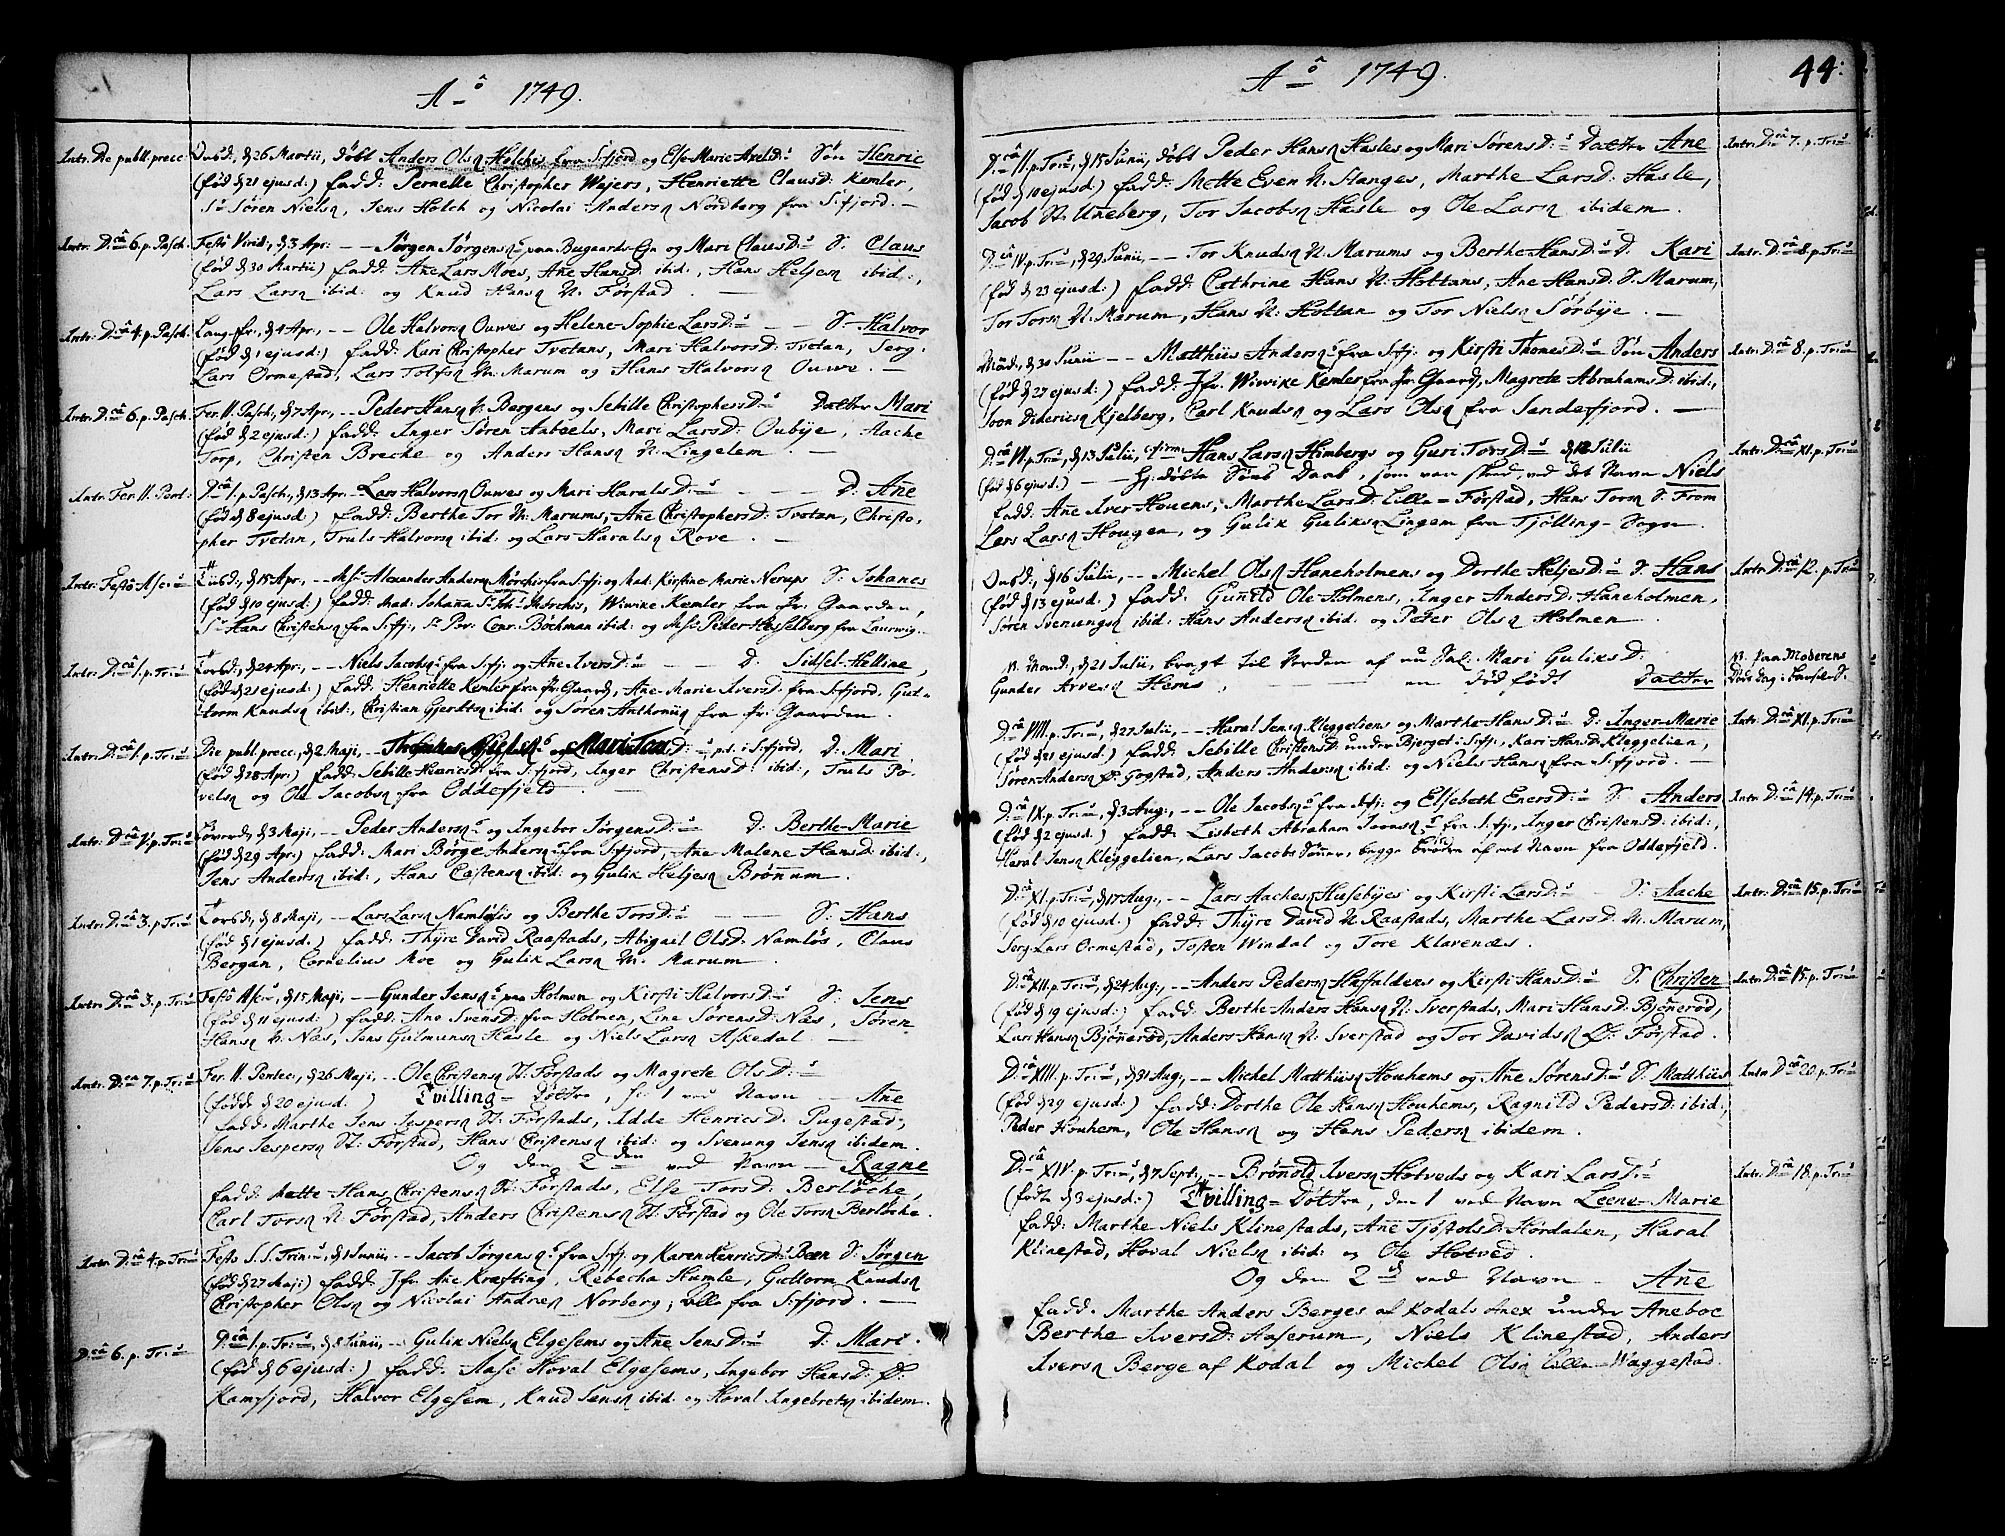 Aº 1749.
Intr. Die publ. prec. Onsd., d. 26 Martii, døbt Anders Olsøn Holchis fra S.fjord og Else-Marie AxelsD: Søn Henric
(fød d. 21 ejusd.) fadd: Pernelle Christopher Wajers, Henriette ClausD: Kemler,
Sr. Søren Nielsn, Jens Holch og Nicolai Andersn Nordberg fra S.fjord.
Intr: D:câ 6. p. Pasch. Festo Virid:, d. 3 Apr: -- Jørgen Jørgensns paa Bugaards-Eyn og Mari ClausD: S. Claus
(fød d. 30 Martii) fadd: Ane Lars Moes, Ane HansD: ibid:, Hans Heljesn ibid:,
Lars Larsn ibid: og Knud Hansn N. Førstad.
Intr: D:câ 4. p. Pasch. Lang-fr., d. 4 Apr., -- Ole Halvorsn Ouwes og Helene-Sophie LarsD: -- S. Halvor
(fød d. 1 ejusd:) fadd: Kari Christopher Tvetans, Mari HalvorsD: Tvetan, Serg.
Lars Ormestad, Lars Tolfsn N. Marum og Hans Halvorsn Ouwe.
Intr: D:câ 6. p. Pasch. Fer. II. Pasch., d. 7 Apr., -- Peder Hansn N. Bergens og Sebille ChristophersD: Datter Mari
(fød d. 2 ejusd:) fadd: Inger Søren Aaboels, Mari LarsD: Oubÿe, Aache
Torp, Christen Breche og Anders Hansn N. Lingelem.
Intr: Fer. II. Pent: D:câ 1. p. Pasch., d. 13 Apr. -- Lars Halvorsn Ouwes og Mari HaralsD: -- D: Ane
(fød d. 8 ejusd:) fadd: Berthe Tor N. Marums, Ane ChristophersD: Tvetan, Christo,
pher Tvetan, Truls Halvorsn ibid: og Lars Haralsn Rove.
Intr: Festo Asc: Tiisd., d. 15 Apr., -- Msr. Alexander Andersn Mörchis fra S.fj: og Mad: Kirstine Marie Nerups S. Johanes
(fød d. 10 ejusd:) fadd: Mad: Johana Mörchis, Wiwike Kemler fra Pr: Gaarden,
Sr. Hans Christensn fra S.fj:, Sr. Pov: Conr: Böchman ibid: og Msr. Peder Hesselberg fra Laurwig.
Intr: D:câ 1. p. Tr: Torsd., d. 24 Apr., -- Niels Jacobsn fra S.fj: og Ane IversD: -- D: Sidsel-Helline,
(fød d. 21 ejusd:) fadd: Henriette Kemler fra Pr: Gaard, Ane-Marie IversD: fra S.fjord, Gut-
torm Knudsn ibid:, Christian Gjerdtsn ibid: og Søren Anthonii fra Pr: Gaarden.
Intr: D:câ 1. p. Tr: Die publ. prec:, d. 2 Maji, -- og Mari D: i S.fjord, D: Mari
(fød d. 28 Apr:) fadd: Sebille HenricsD: fra S.fjord, Inger ChristensD: ibid:, Truls Po-
velsn og Ole Jacobsn fra Oddefjeld.
Intr: D:câ V. p. Tr: Løverd., d. 3 Maji, -- Peder Andersn og Ingebor JørgensD: D: Berthe-Marie
(fød d. 29 Apr:) fadd: Mari Börge Andersn fra S.fjord, Ane Malene HansD: ibid:,
Jens Andersn ibid:, Hans Castensn ibid: og Gulik Heljesn Brönum.
Intr: D:câ 3. p. Tr: Torsd., d. 8 Maji, -- Lars Larsn Namløsis og Berthe TorsD: -- S: Hans
(fød d. 1 ejusd:) fadd: Thÿre David Raastads, Abigail OlsD: Namløs, Claus
Bergan, Cornelius Moe og Gulik Larsn N. Marum.
Intr: D:câ 3. p. Tr: Festo Asc:, d. 15 Maji, -- Gunder Jensn paa Holmen og Kirsti HalvorsD: S: Jens
(fød d. 11 ejusd:) fadd: Ane SvensD: fra Holmen, Line SørensD: Næs, Søren
Hansn N. Næs, Jens Gulmunsn Hasle og Niels Larsn Askedal.
Intr: D:ca 7. p. Tr: Fer. II. Pentec:, d. 26 Maji, -- Ole Christensn N. Førstads og Magrete OlsD:
(fødde d. 20 ejusd:) Tvilling-Døttre, d. 1 ved Navn -- Ane
fadd: Marthe Jens Jespersn N. Førstads, Idde HenricsD: Pugestad,
Jens Jespersn N. Førstad, Hans Christensn ibid: og Svenung Jensn ibidem.
Og den 2den ved Navn -- Ragne
fadd: Mette Hans Christensn N. Førstads, Else TorsD: Berløche,
Carl Torsn N. Førstad, Anders Christensn N. Førstad og Ole Torsn Berløche.
Intr: D:câ 4. p. Tr: Festo S.S. Trin:, d. 1 Junii, -- Jacob Jørgensn fra S.fj: og Karen HenricsD: Been S: Jørgen
(fød d. 27 Maji) fadd: Jfr. Ane Kræfting, Rebecha Humle, Guttorm Knudsn
Christopher Olsn og Nicolai Andresn Norberg; alle fra S.fjord.
D:câ 6. p. Tr: D:câ 1. p. Tr:, d. 8 Junii, -- Gulik Nielsn Elgesems og Ane JensD: D: Mari.
(fød d. 6 ejusd:) fadd: Aase Hoval Elgesems, Ingebor HansD: Ø:
Kamfjord, Halvor Elgesem, Knud Jensn ibid: og Hoval Ingebretsn ibidem.
Aº 1749. 44:
D:câ II. p. Tr:, d. 15 Junii, døbt Peder Hansn Hasles og Mari SørensD: Datter Ane Intr: D:câ 7. p. Tr:
(fød d. 10 ejusd:) fadd: Mette Even N. Slanges, Marthe LarsD: Hasle,
Jacob St. Uneberg, Tor Jacobsn Hasle og Ole Larsn ibidem.
D:câ IV. p. Tr:, d. 29 Junii, -- Tor Knudsn N. Marums og Berthe HansD: D. Kari Intr: D:câ 8. p. Tr:
(fød d. 23 ejusd:) fadd: Cathrine Hans N. Holtans, Ane HansD: S. Marum,
Tor Torsn N. Marum, Hans N. Holtan og Tor Nielsn Sörbÿe.
Månd., d. 30 Junii -- Matthiis Andersn fra S.fj: og Kirsti ThomesD: Søn Anders Intr: D:câ 8. p. Tr:
(fød d. 27 ejusd:) fadd: Jfr. Wiwike Kemler fra Pr: Gaard, Magrete AbrahamsD: ibid:,
Joon Didericsn Kjelberg, Carl Knudsn og Lars Olsn fra Sandefjord.
D:câ VI. p. Tr:, d. 13 Julii, confirm: Hans Larsn Himbergs og Guri TorsD: d. 12 Julii Intr: D:câ XI. p. Tr:
(fød d. 6 ejusd:) -- Hj: døbte Søns Daab, som var skeed, ved det Navn Niels
fadd: Ane Iver Houens, Marthe LarsD: Lille-Førstad, Hans Torsn S. From
Lars Larsn Hougen, og Gulik Guliksn Lingem fra Tjølling-Sogn.
Onsd., d. 16 Julii, -- Michel Olsn Haneholmens og Dorthe HeljesD: S. Hans Intr: D:câ 12. p. Tr:
(fød d. 13 ejusd:) fadd: Gunild Ole Holmens, Inger AndersD: Haneholmen,
Søren Svenungsn ibid: Hans Andersn ibid: og Peter Olsn Holmen.
n. Mand., d. 21 Julii, bragt til Jorden af nu Sal: Mari GuliksD: n. paa Moderens
Gunder Arvesn Hems, -- en død født Datter Døds dag i
D:câ VIII. p. Tr:, d. 27 Julii, -- Haral Jensn Kleggeliens og Marthe HansD: D: Inger-Marie Intr: D:câ XI. p. Tr:
(fød d. 21 ejusd:) fadd: Sebille ChristensD: under Bjerget i S.fj:, Kari HansD: Kleggelien,
Søren Andersn Ø: Gogstad, Anders Andersn ibid: og Niels Hansn fra S.fjord.
D:câ IX. p. Tr:, d. 3 Aug:, -- Ole Jacobsn fra S.fj: og Elsebeth EnersD: S. Anders Intr: D:câ 14. p. Tr:
(fød d. 2 ejusd:) fadd: Lisbeth Abraham Joonsn fra S.fj:, Inger ChristensD: ibid:,
Haral Jensn Kleggelien, Lars Jacobs Sønner, begge brødre af eet Navn fra Oddefjeld.
D:câ XI. p. Tr:, d. 17 Aug:, -- Lars Aachesn Husebÿes og Kirsti LarsD: -- S: Aache Intr: D:câ 15. p. Tr:
(fød d. 10 ejusd:) fadd: Thÿre David N. Raastads, Marthe LarsD: N. Marum,
Serg. Lars Ormestad, Tosten Windal og Tore Klavenæs.
D:câ XII. p. Tr:, d. 24 Aug:, -- Anders Pedersn Haffaldens og Kirsti HansD: S. Christen Intr: D:câ 15. p. Tr:
(fød d. 19 ejusd:) fadd: Berthe Anders Hansn N. Sverstads, Mari HansD: Bjönerød,
Lars Hansn Bjönerød, Anders Hansn N. Sverstad og Tor Davidsn Ø: Førstad.
D:câ XIII. p. Tr:, d. 31 Aug:, -- Michel Matthiisn Houhems og Ane SørensD: S. Matthiis Intr D:câ 20. p. Tr:
(fød d. 29 ejusd:) fadd: Dorthe Ole Hansn Houhems, Ragnild PedersD: ibid:,
Peder Houhem, Ole Hansn og Hans Pedersn ibidem.
D:câ XIV. p. Tr:, d. 7 Sept:, -- Brönild Iversn Hotveds og Kari LarsD: Intr: D:câ 18. p. Tr:
(fødte d. 3 ejusd:) Tvilling-Døttre, den 1 ved Navn Leene-Marie
fadd: Marthe Niels Klinestads, Ane TjøstolsD: Hørdalen, Haral
Klinestad, Hoval Nielsn ibid: og Ole Hotved.
Og den 2den ved Navn -- Ane
fadd. Marthe Anders Berges af Kodals Anex under Aneboe
Berthe IversD: Aaserum, Niels Klinestad, Anders
Iversn Berge af Kodal og Michel Olsn Lille-Waggestad.